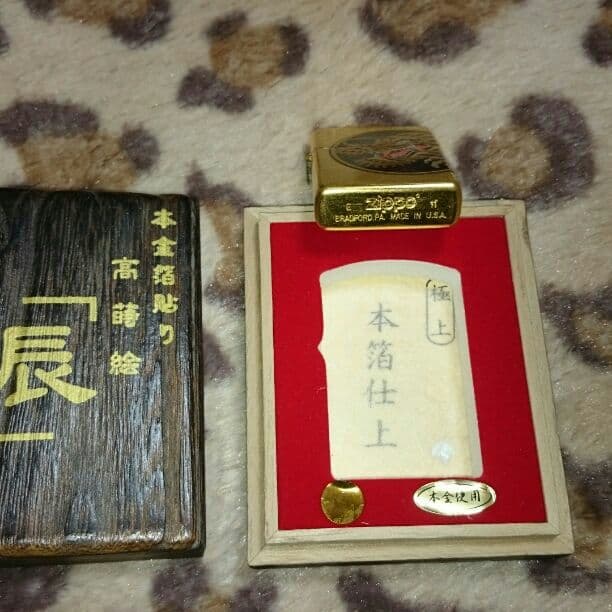 本金箔貼り
高蒔絵
「辰」
E zippo 11
BRADFORD,PA. MADE IN U.S.A.
極上
本箔仕上
本金使用